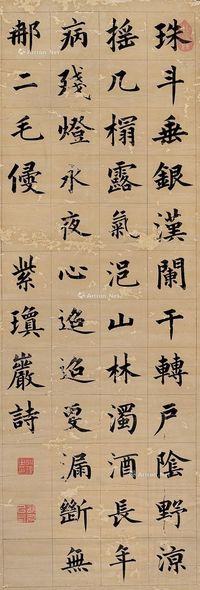 珠斗垂銀漢闌干轉戶陰野涼
搖几榻露氣浥山林濁酒長年
病殘燈永夜心迢迢更漏斷無
那二毛侵 紫瓊巖詩
Artron.Net